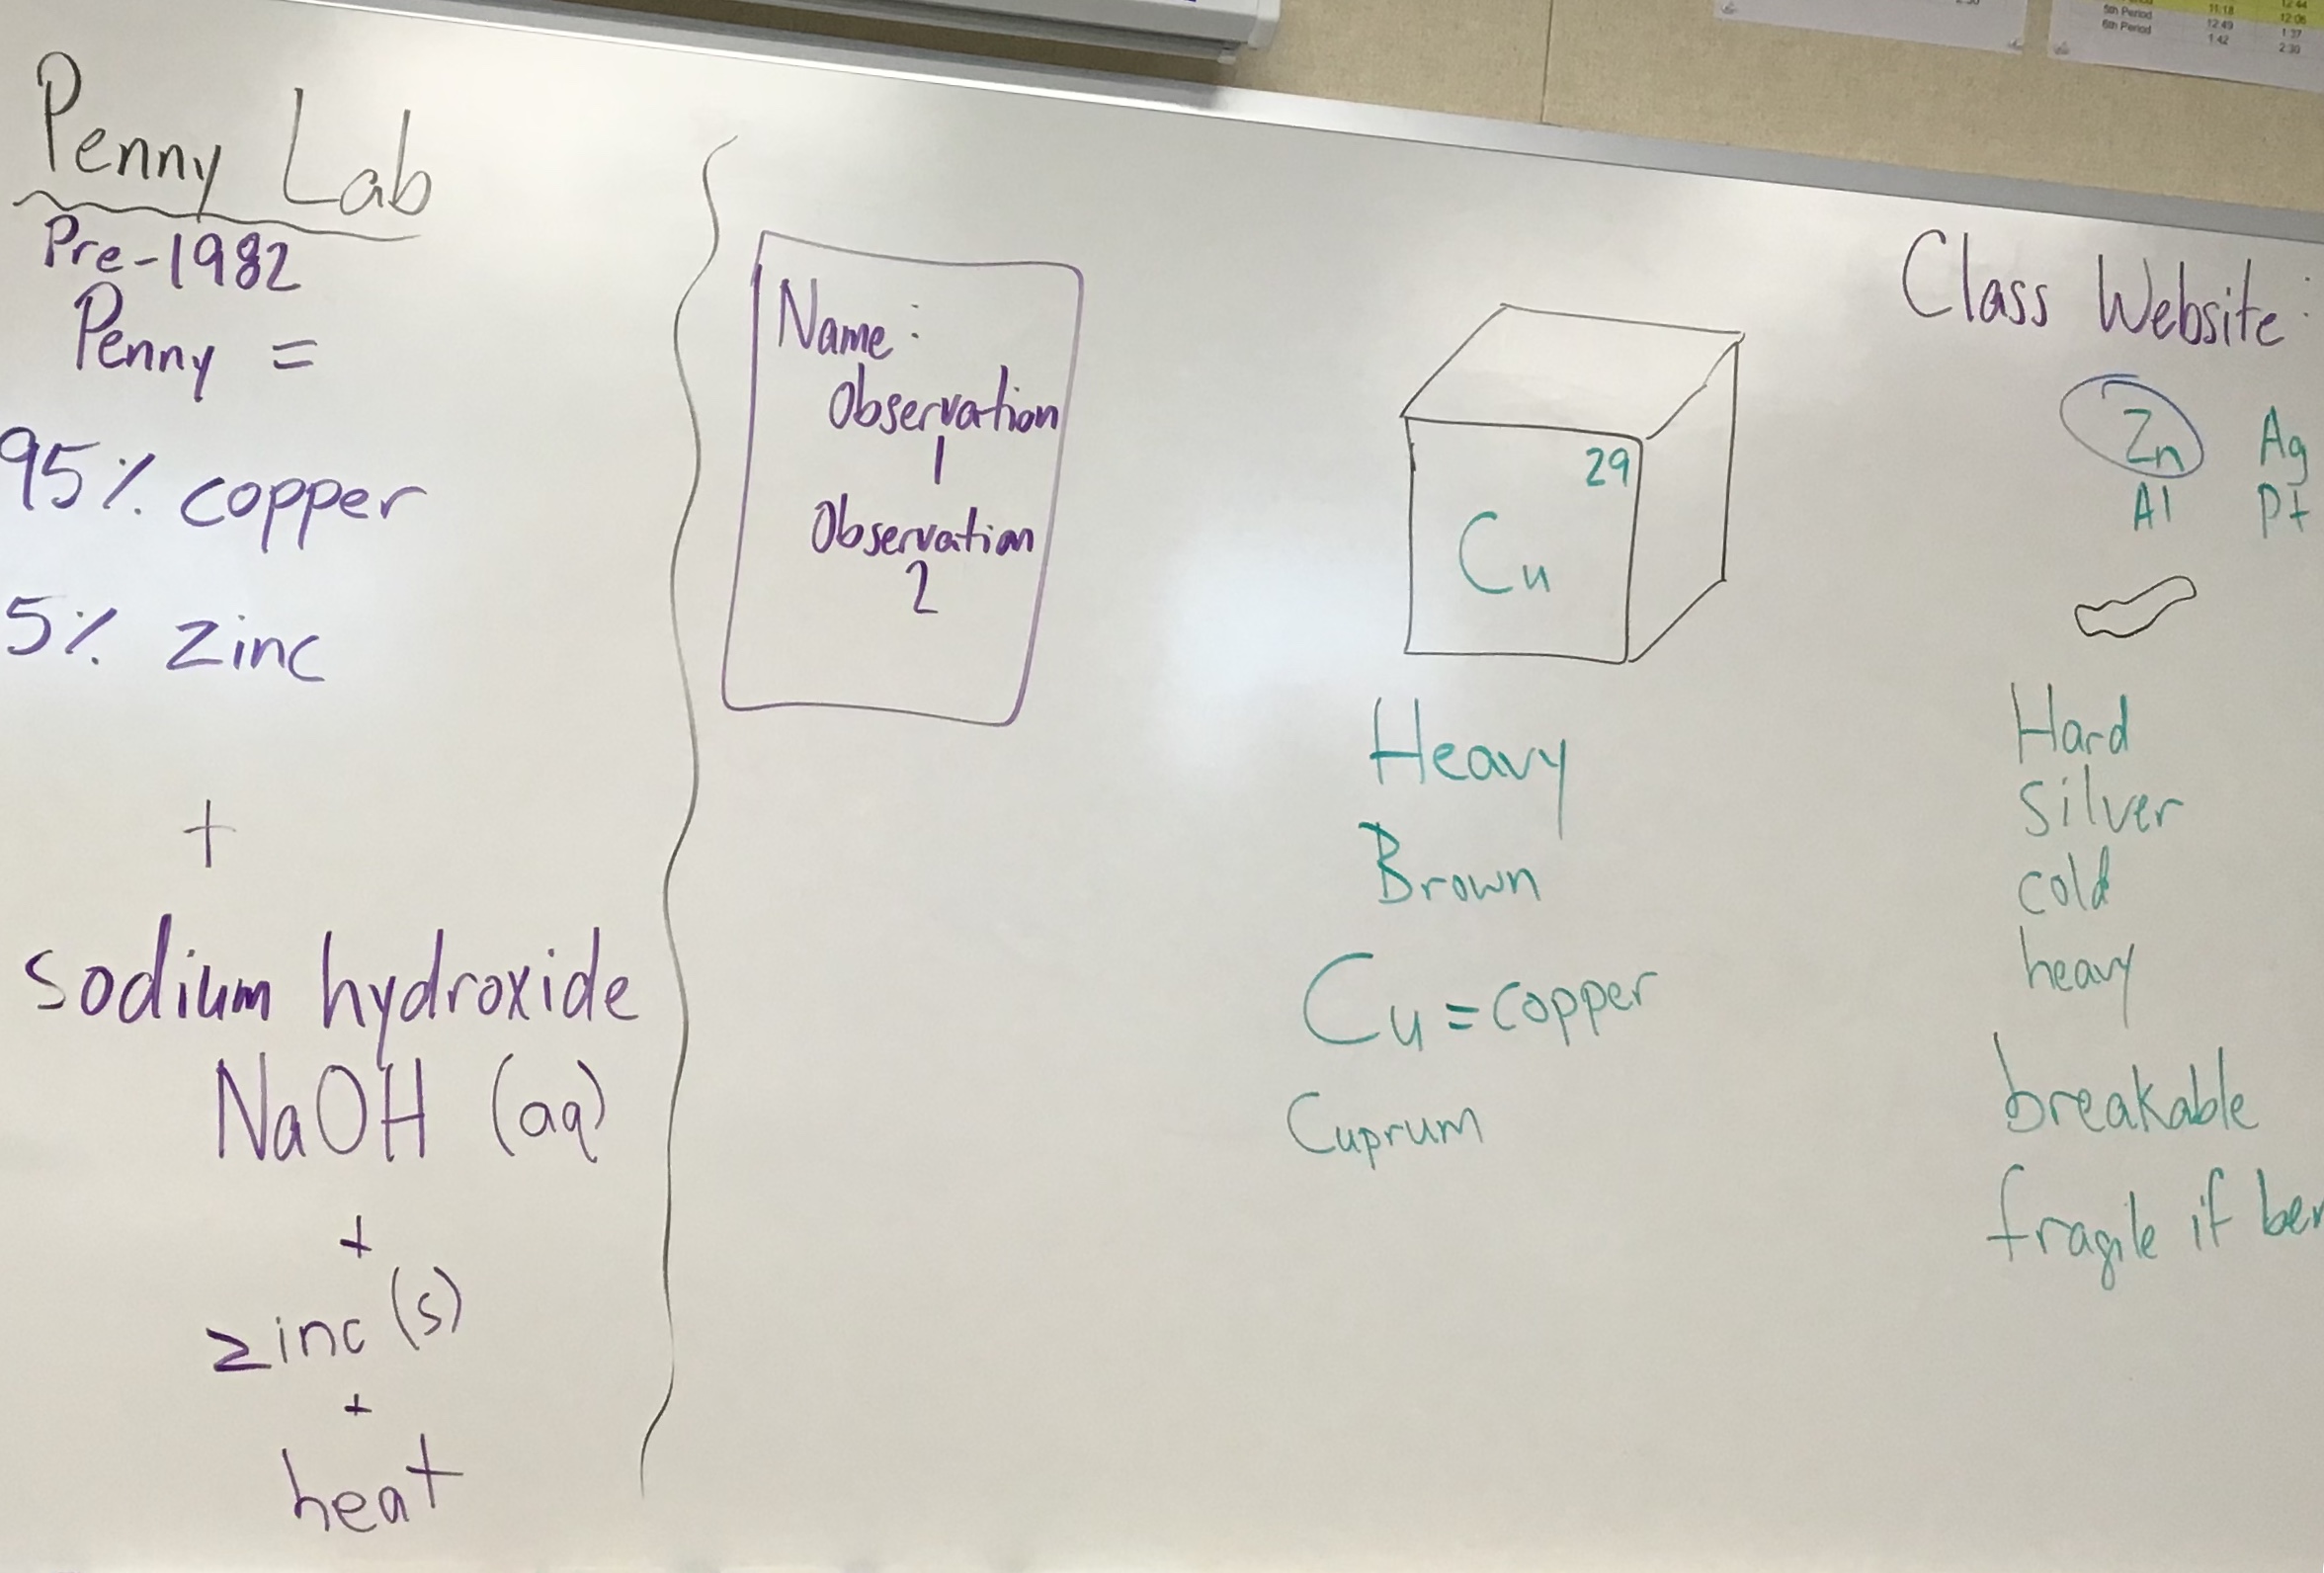 5th Period 11:18 12:06
6th Period 12:49 1:37
1:42 2:30
Penny Lab
Pre-1982
Penny =
95% copper
5% zinc
+
sodium hydroxide
NaOH (aq)
+
zinc (s)
+
heat
Name:
Observation
1
Observation
2
29
Cu
Heavy
Brown
Cu = copper
Cuprum
Class Website:
Zn Ag
Al Pt
Hard
silver
cold
heavy
breakable
fragile if